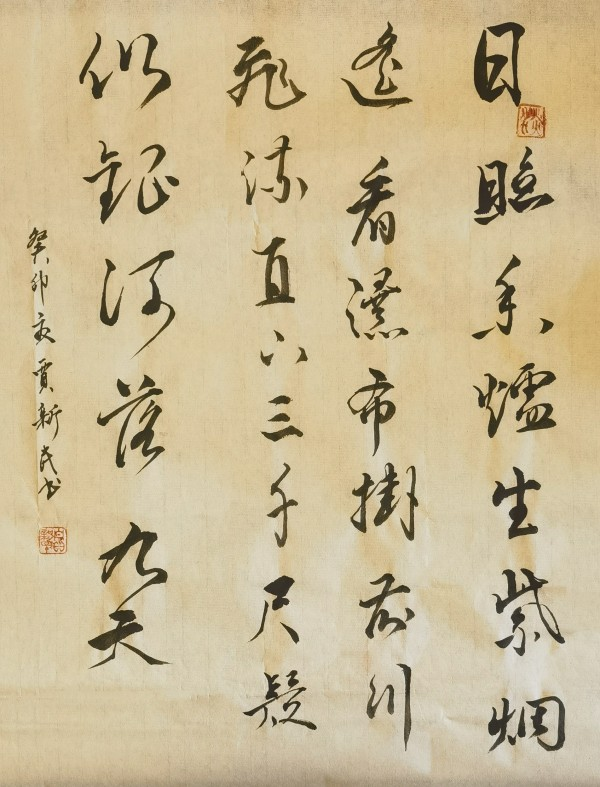 日照香爐生紫烟
遙看瀑布掛前川
飛流直下三千尺疑
似銀河落九天
癸卯夏賈新民书